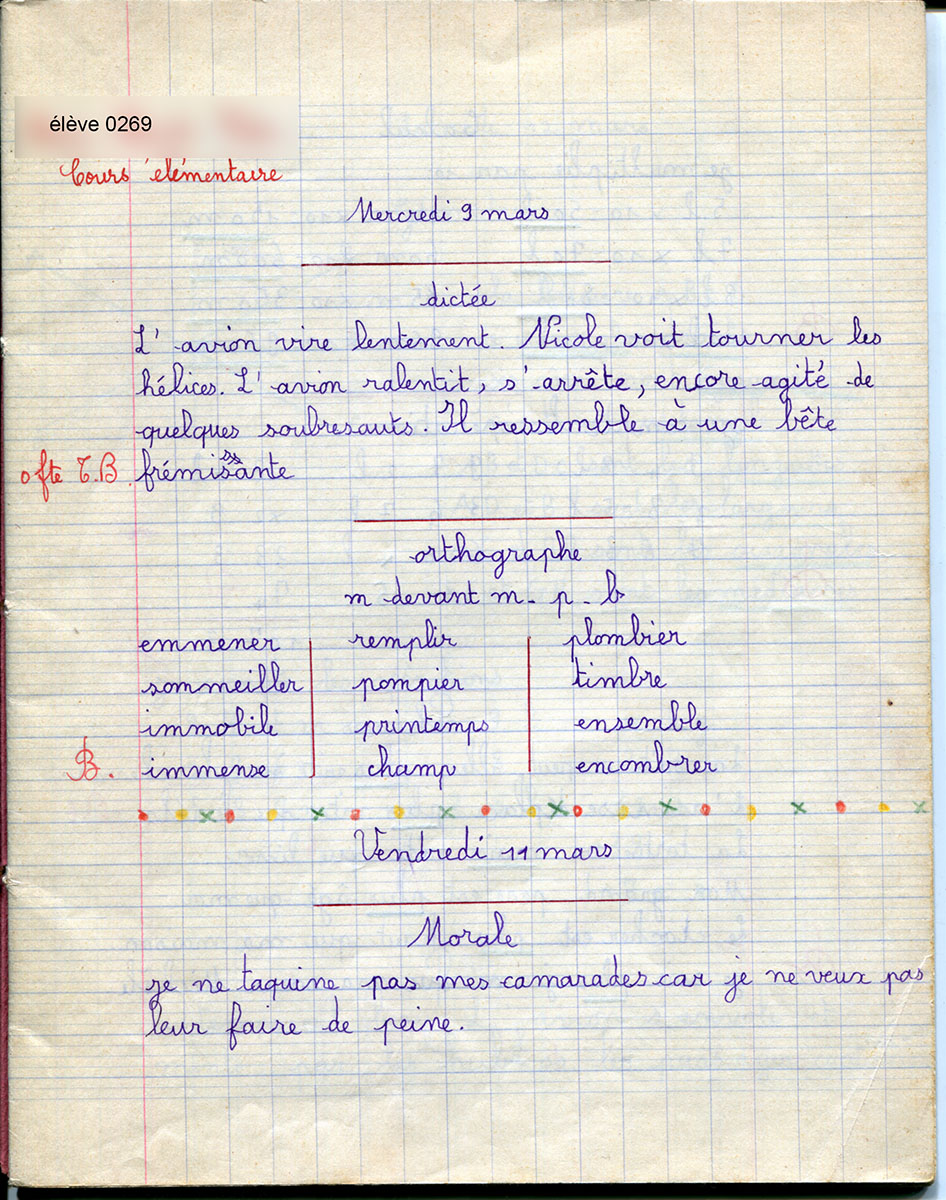 élève 0269
Cours élémentaire
Mercredi 9 mars
dictée
L'avion vire lentement. Nicole voit tourner les
hélices. L'avion ralentit, s'arrête, encore agité de
quelques soubresauts. Il ressemble à une bête
ofte T.B. frémissante
orthographe
m devant m - p - b
emmener remplir plombier
sommeiller pompier timbre
immobile printemps ensemble
B. immense champ encombrer
Vendredi 11 mars
Morale
je ne taquine pas mes camarades car je ne veux pas
leur faire de peine.